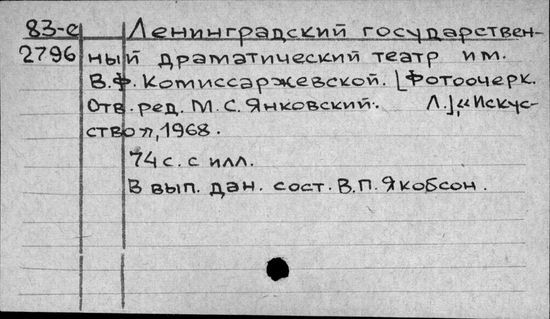 83-е Ленинградский государствен-
2796 ный драматический театр им.
В.Ф. Комиссаржевской. [Фотоочерк.
Отв. ред. М.С. Янковский. Л.], „Искус-
ство", 1968.
74 с. с илл.
В вып. дан. сост. В.П. Якобсон.